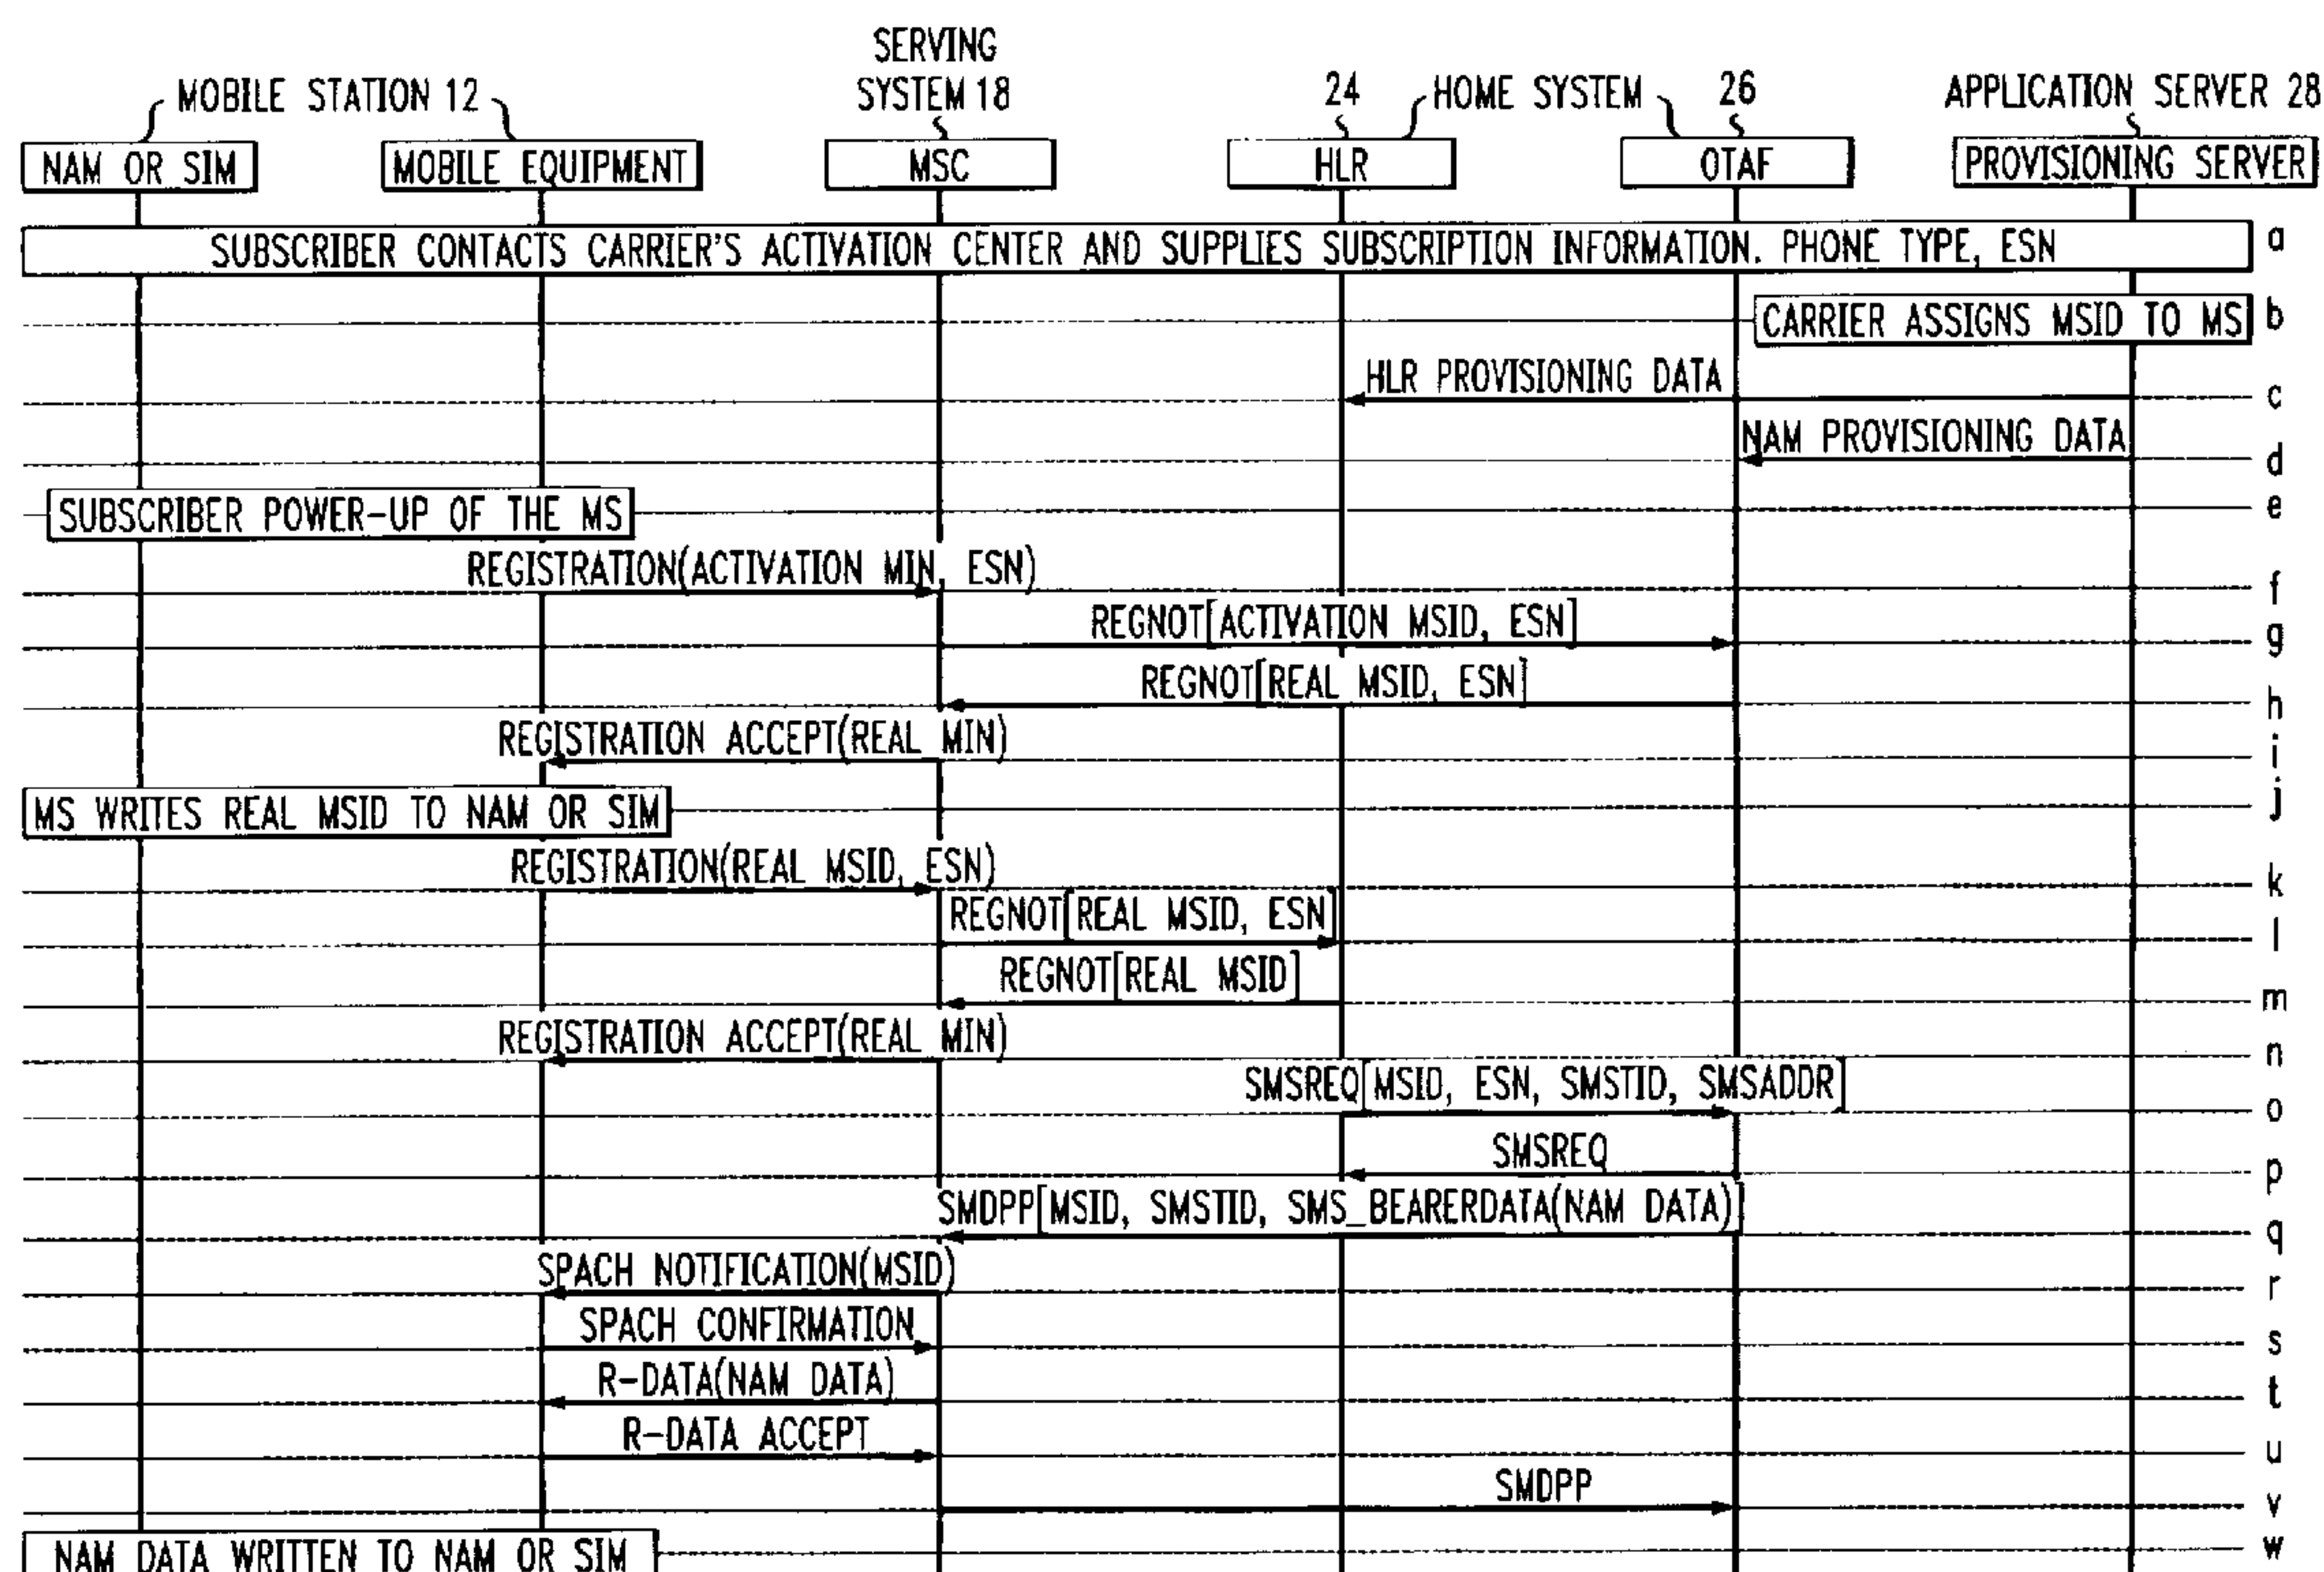 SERVING
MOBILE STATION 12
SYSTEM 18
24
HOME SYSTEM
26
APPLICATION SERVER 28
NAM OR SIM
MOBILE EQUIPMENT
MSC
HLR
OTAF
PROVISIONING SERVER
SUBSCRIBER CONTACTS CARRIER'S ACTIVATION CENTER AND SUPPLIES SUBSCRIPTION INFORMATION. PHONE TYPE, ESN
a
CARRIER ASSIGNS MSID TO MS
b
HLR PROVISIONING DATA
c
NAM PROVISIONING DATA
d
SUBSCRIBER POWER-UP OF THE MS
e
REGISTRATION(ACTIVATION MIN, ESN)
f
REGNOT[ACTIVATION MSID, ESN]
g
REGNOT[REAL MSID, ESN]
h
REGISTRATION ACCEPT(REAL MIN)
i
MS WRITES REAL MSID TO NAM OR SIM
j
REGISTRATION(REAL MSID, ESN)
k
REGNOT[REAL MSID, ESN]
l
REGNOT[REAL MSID]
m
REGISTRATION ACCEPT(REAL MIN)
n
SMSREQ[MSID, ESN, SMSTID, SMSADDR]
o
SMSREQ
p
SMDPP[MSID, SMSTID, SMS_BEARERDATA(NAM DATA)]
q
SPACH NOTIFICATION(MSID)
r
SPACH CONFIRMATION
s
R-DATA(NAM DATA)
t
R-DATA ACCEPT
u
SMDPP
v
NAM DATA WRITTEN TO NAM OR SIM
w